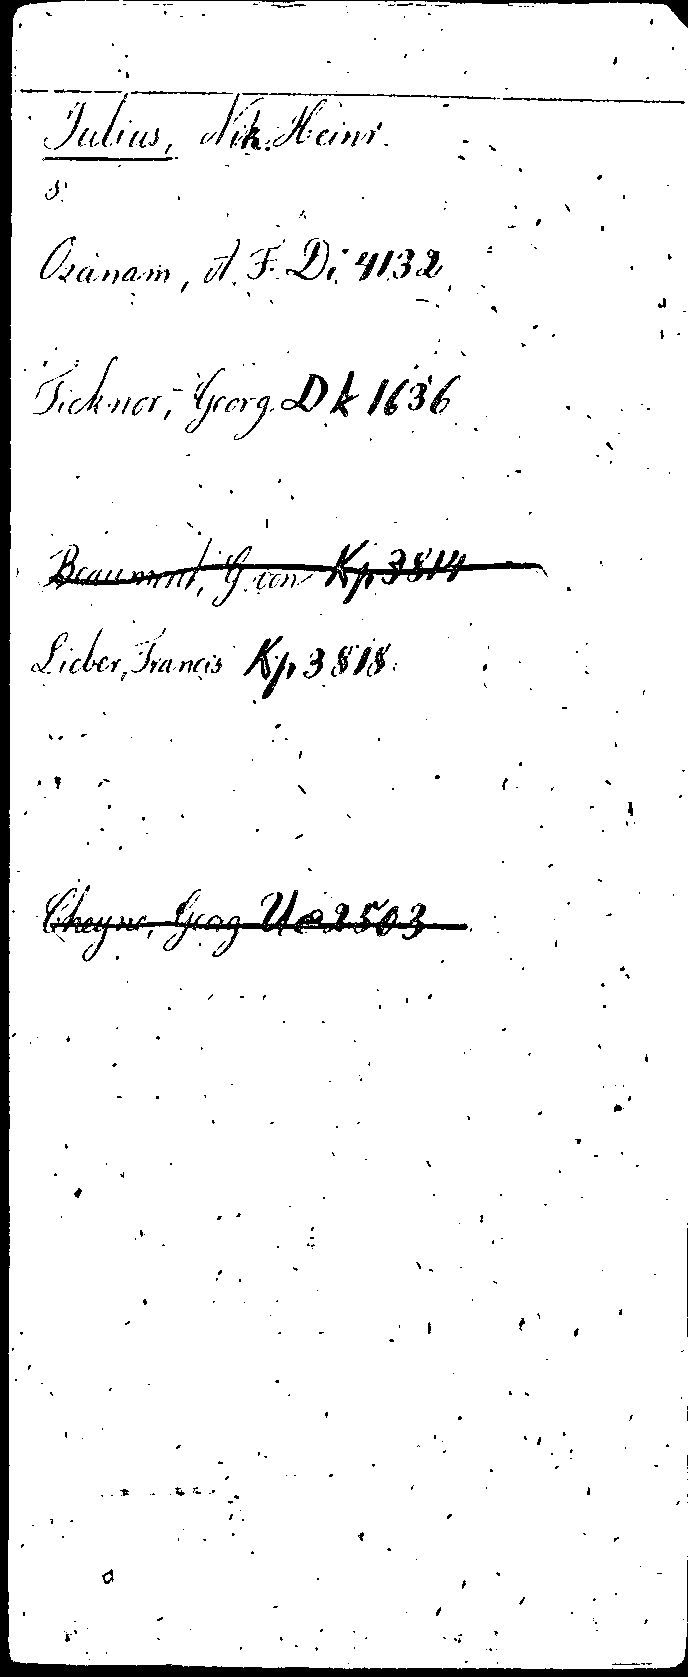 Julius, Nik. Heinr.
s.
Ozanam, A. F. Di 4132
Ticknor, Georg. Dk 1636
Beaumont, G. von Kp 3814
Lieber, Francis Kp 3818.
Cheyne, Georg Ue 2503